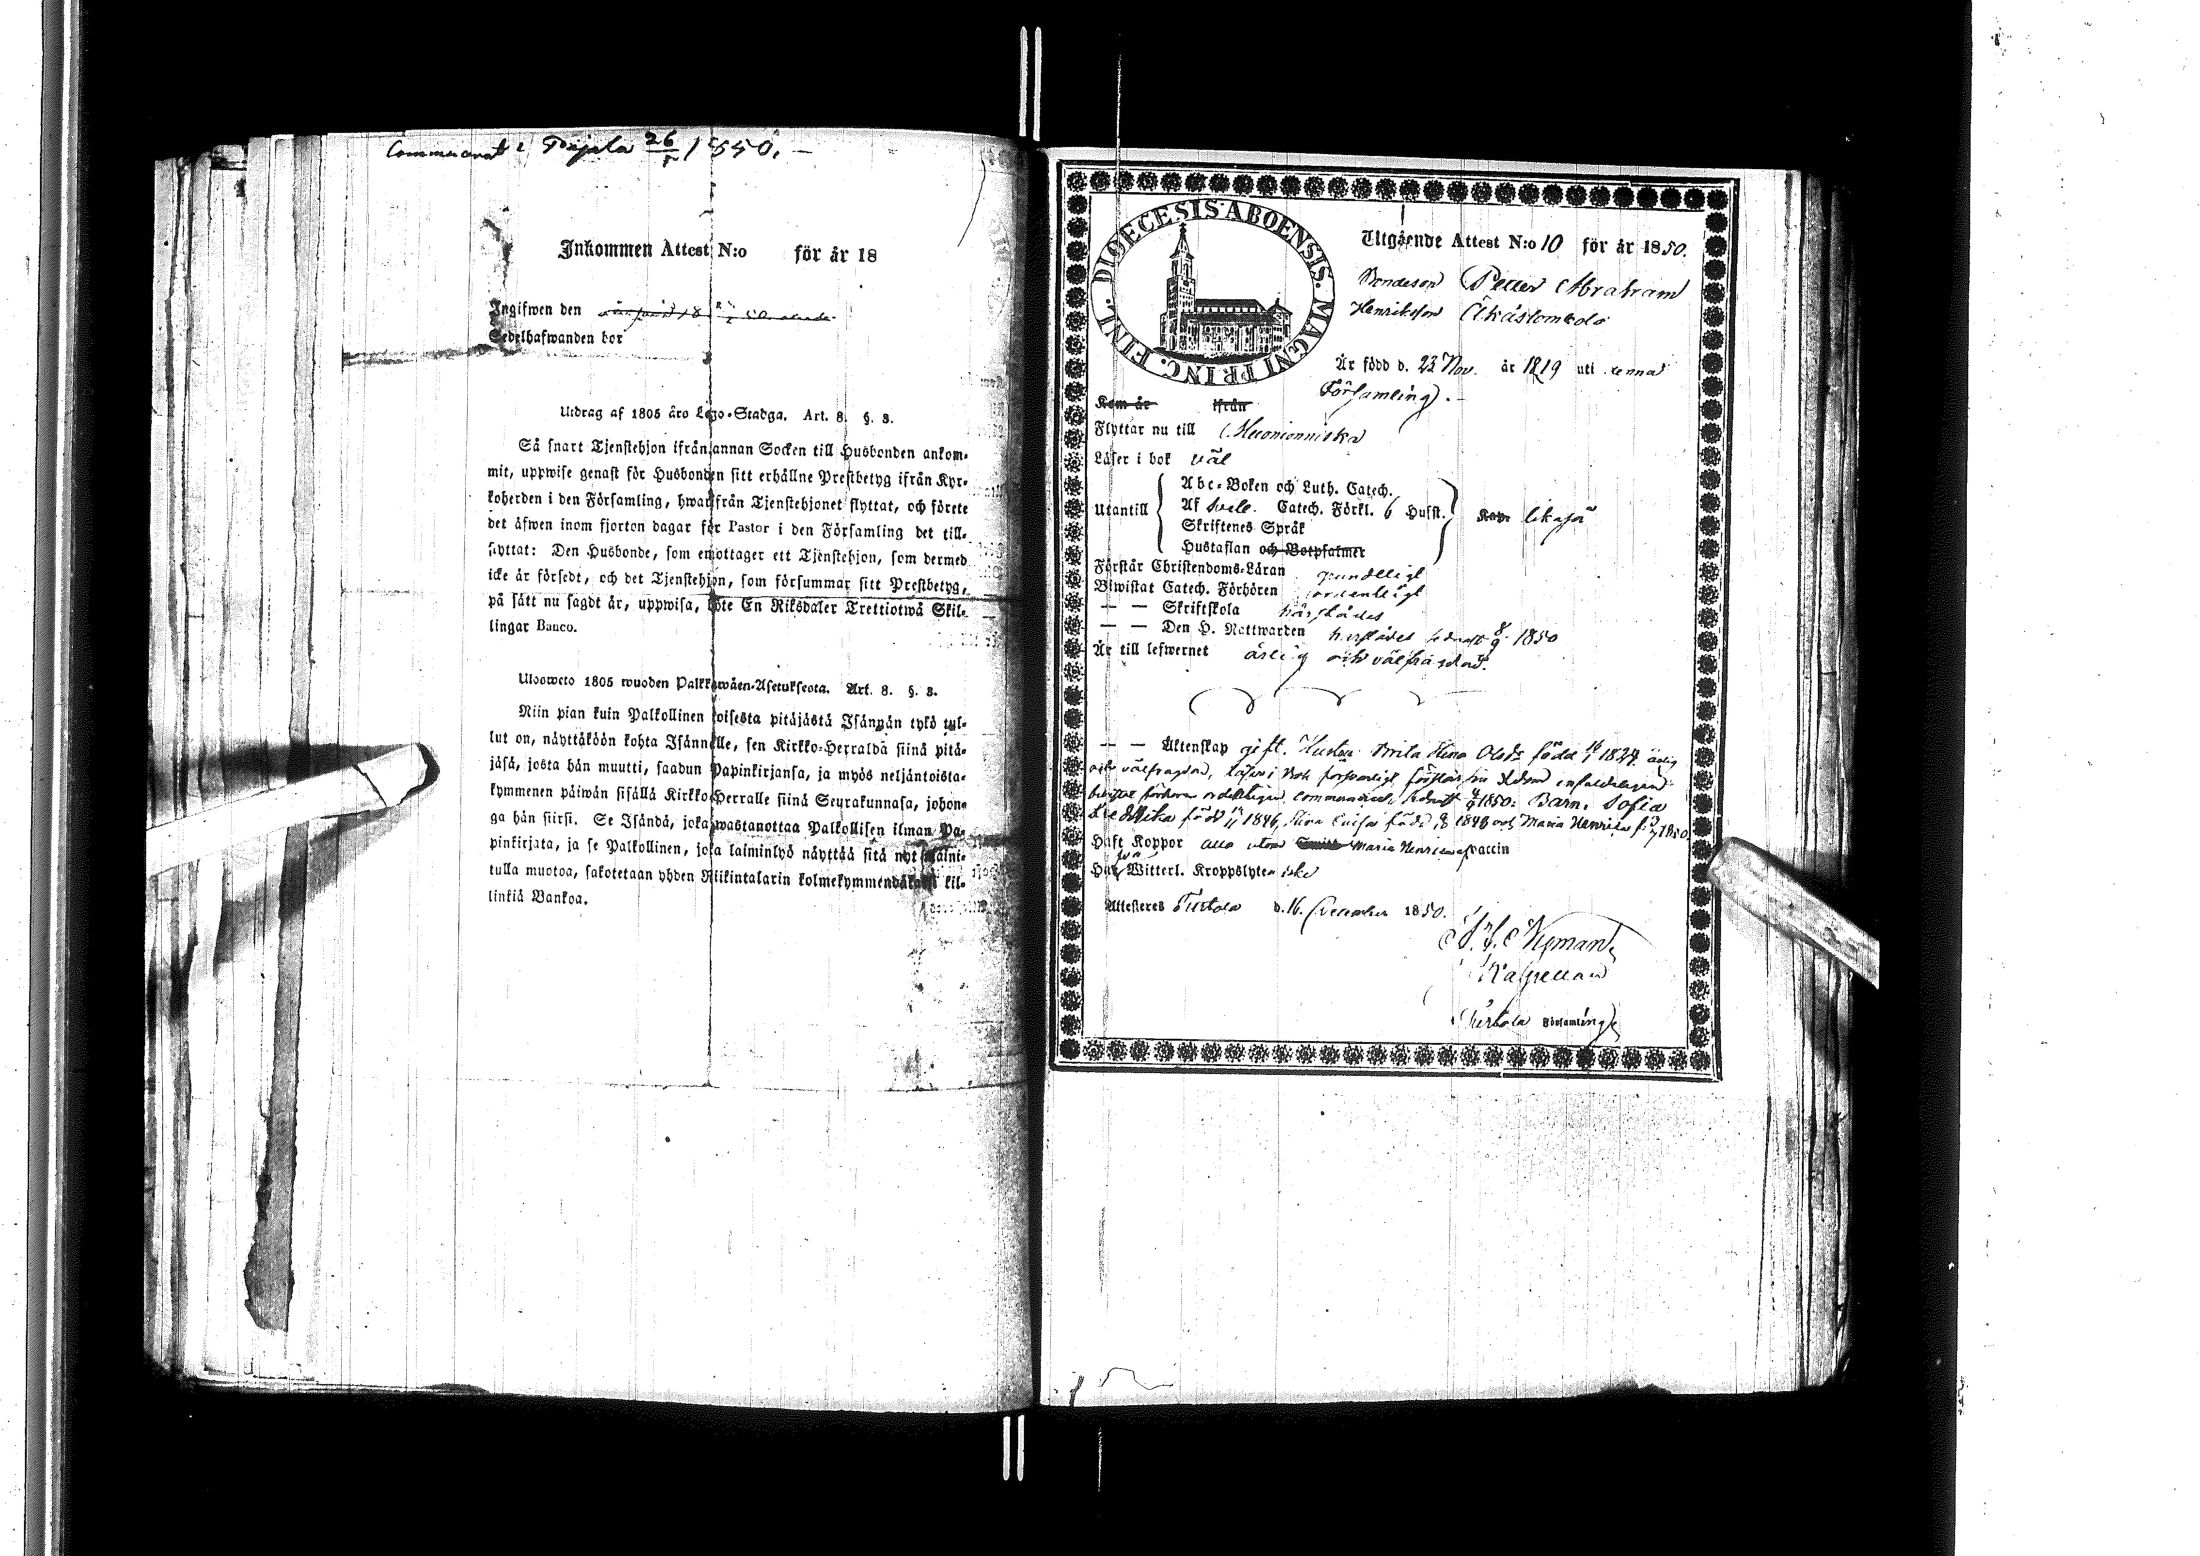 Communicerat i Pajala 26/5 1850.
Inkommen Attest N:o för år 18
Ingifwen den
Sedelhafwanden bor
Utdrag af 1805 års Lego-Stadga. Art. 8. §. 8.
Så snart Tjenstehjon ifrån annan Socken till Husbonden ankom-
mit, uppwise genast för Husbonden sitt erhållne Prestbetyg ifrån Kyr-
koherden i den Församling, hwarifrån Tjenstehjonet flyttat, och förete
det äfwen inom fjorton dagar för Pastor i den Församling det till-
flyttat: Den Husbonde, som emottager ett Tjenstehjon, som dermed
icke är försedt, och det Tjenstehjon, som försummar sitt Prestbetyg,
på sätt nu sagdt är, uppwisa, böte En Riksdaler Trettiotwå Skil-
lingar Banco.
Ulosweto 1805 wuoden Palkkawäen-Asetuksesta. Art. 8. §. 8.
Niin pian kuin Palkollinen toisesta pitäjästä Isännän tykö tul-
lut on, näyttäköön kohta Isännälle, sen Kirkko-Herralda siinä pitä-
jäsä, josta hän muutti, saadun Papinkirjansa, ja myös neljäntoista-
kymmenen päiwän sisällä Kirkko-Herralle siinä Seurakunnasa, johon-
ga hän siirsi. Se Isändä, joka wastanottaa Palkollisen ilman Pa-
pinkirjata, ja se Palkollinen, joka laiminlyö näyttää sitä nyt maini-
tulla muotoa, sakotetaan yhden Riikintalarin kolmekymmendäkaksi kil-
linkiä Bankoa.
DIOECESIS ABOENSIS. MAGNI PRINC. FINL.
Utgående Attest N:o 10 för år 1850.
Bondeson Petter Abraham
Henriksson Äkäslombolo
Är född d. 23 Nov. år 1819 uti denna
Församling.
Kom år ifrån
Flyttar nu till Muonionniska
Läser i bok väl
Utantill Abc-Boken och Luth. Catech.
Af Svebe. Catech. Förkl. 6 Hufst. Kan likaså
Skriftenes Språk
Hustaflan och Botpsalmer
Förstår Christendoms-Läran grundeligt
Biwistat Catech. Förhören ordentligt
— — Skriftskola härstädes
— — Den H. Nattwarden härstädes sednast 8/9 1850
Är till lefwernet ärlig och välfräjdad.
— — Äktenskap gift. Hustru Brita Stina Olofsdr född 1824 ärlig
och välfrägdad, läser i bok försvarligt förstår sin enfaldeligen
förhören ordentligen communicerade sednast 1850. Barn. Sofia
Fredrika född 1846, Stina Lovisa född 1848 och Maria Henrica f. 1850
Haft Koppor alla utom Maria Henrica vaccin
Har Witterl. Kroppslyte icke
Attesteres Turtola d. 16. December 1850.
Nyman
Kapellan
Turtola Församling